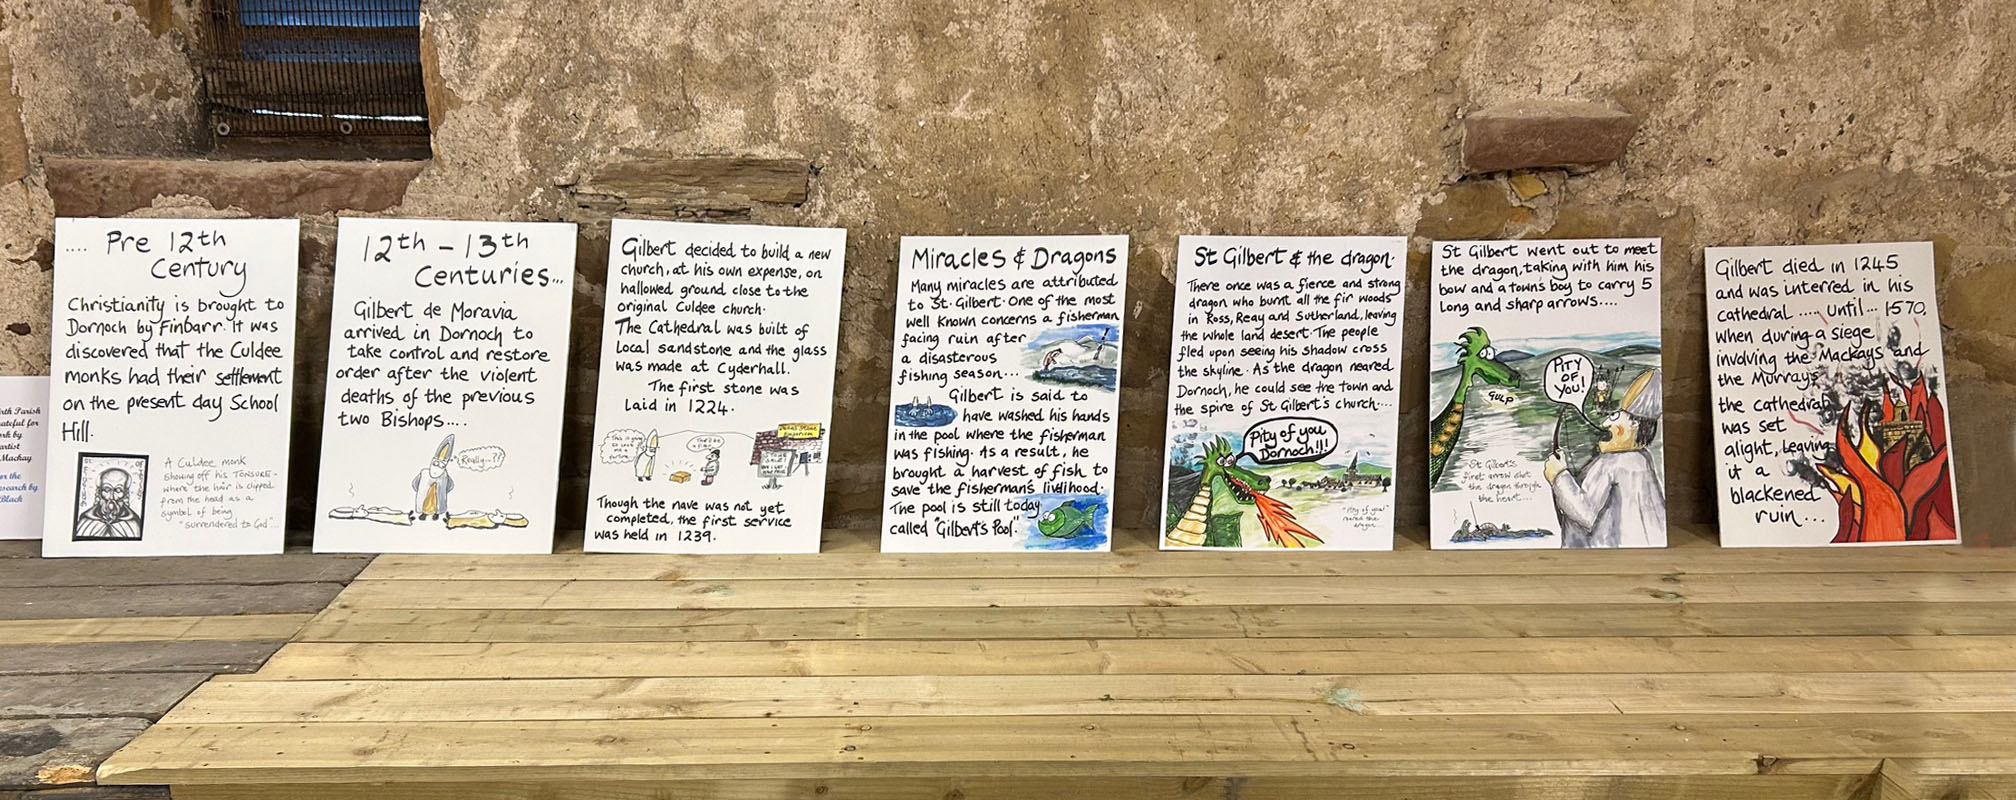 rth Parish
ateful for
rk by
artist
Mackay
or the
esearch by
Black
.... Pre 12th
Century
Christianity is brought to
Dornoch by Finbarr. It was
discovered that the Culdee
monks had their settlement
on the present day School
Hill.
A Culdee monk
showing off his TONSURE-
where the hair is clipped
from the head as a
symbol of being
"surrendered to God"...
12th - 13th
Centuries...
Gilbert de Moravia
arrived in Dornoch to
take control and restore
order after the violent
deaths of the previous
two Bishops....
Really...??
Gilbert decided to build a new
church, at his own expense, on
hallowed ground close to the
original Culdee church.
The Cathedral was built of
local sandstone and the glass
was made at Cyderhall.
The first stone was
laid in 1224.
Though the nave was not yet
completed, the first service
was held in 1239.
Miracles & Dragons
Many miracles are attributed
to St. Gilbert. One of the most
well known concerns a fisherman
facing ruin after
a disasterous
fishing season...
Gilbert is said to
have washed his hands
in the pool where the fisherman
was fishing. As a result, he
brought a harvest of fish to
save the fisherman's livlihood.
The pool is still today
called "Gilbert's Pool."
St Gilbert & the dragon.
There once was a fierce and strong
dragon who burnt all the fir woods
in Ross, Reay and Sutherland, leaving
the whole land desert. The people
fled upon seeing his shadow cross
the skyline. As the dragon neared
Dornoch, he could see the town and
the spire of St Gilbert's church....
Pity of you
Dornoch!!!
"Pity of you!"
roared the
dragon...
St Gilbert went out to meet
the dragon, taking with him his
bow and a towns boy to carry 5
long and sharp arrows....
PITY
OF
YOU!
GULP
St Gilbert's
first arrow shot
the dragon through
the heart...
Gilbert died in 1245
and was interred in his
cathedral ..... Until... 1570,
when during a siege
involving the Mackays and
the Murrays
the cathedral
was set
alight, leaving
it a
blackened
ruin...